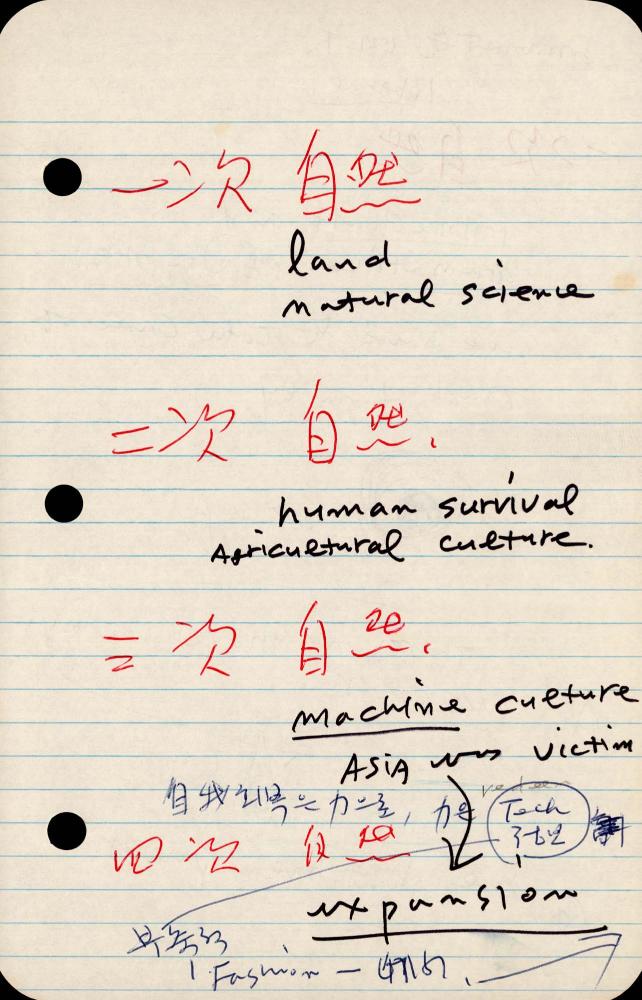 一次 自然
land
natural science
二次 自然.
human survival
Agricultural culture.
三次 自然.
machine culture
ASIA was victim
自我회복은 力으로, 力은
Tech
정보
四次 自然
expansion
Fashion —